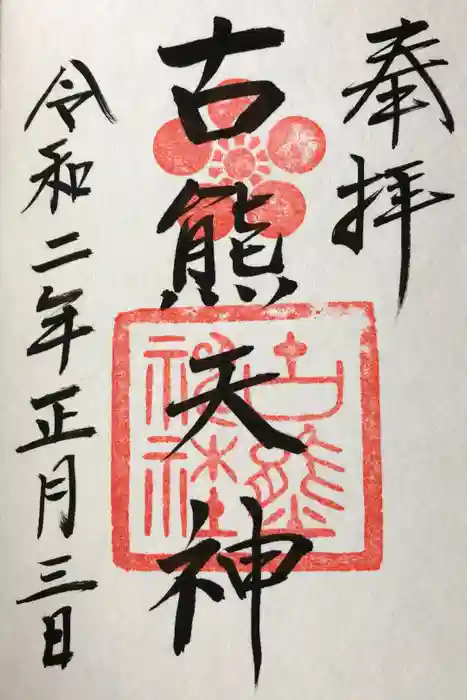 奉拝
古熊天神
古熊神社
令和二年正月三日